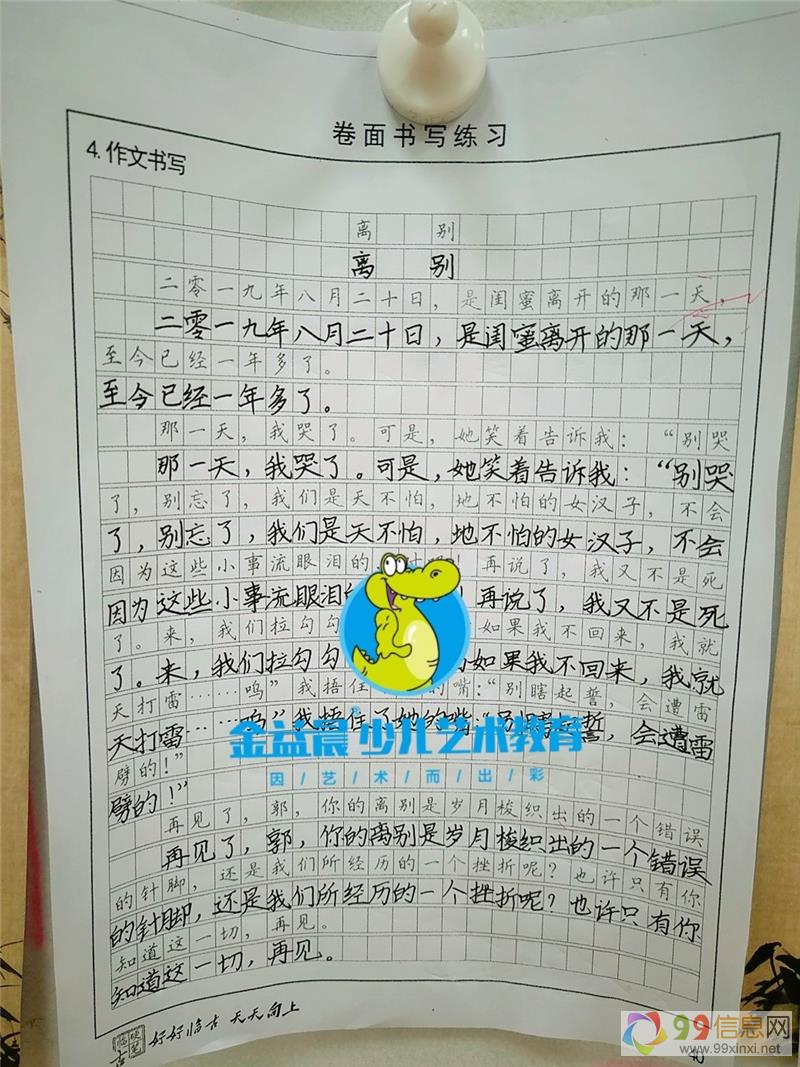 卷面书写练习
4. 作文书写
离 别
离 别
二零一九年八月二十日，是闺蜜离开的那一天，
二零一九年八月二十日，是闺蜜离开的那一天，
至今已经一年多了。
至今已经一年多了。
那一天，我哭了。可是，她笑着告诉我：“别哭
那一天，我哭了。可是，她笑着告诉我：“别哭
了，别忘了，我们是天不怕，地不怕的女汉子，不会
了，别忘了，我们是天不怕，地不怕的女汉子，不会
因为这些小事流眼泪的 再说了，我又不是死
因为这些小事流眼泪的 再说了，我又不是死
了。来，我们拉勾 如果我不回来，我就
了。来，我们拉勾勾 如果我不回来，我就
天打雷……呜”我捂住 的嘴：“别瞎起誓，会遭雷
天打雷……呜”我捂住了她的嘴：“别瞎 誓，会遭雷
劈的！”
劈的！”
金益晨®少儿艺术教育
因/艺/术/而/出/彩
再见了，郭，你的离别是岁月梭织出的一个错误
再见了，郭，你的离别是岁月梭织出的一个错误
的针脚，还是我们所经历的一个挫折呢？也许只有你
的针脚，还是我们所经历的一个挫折呢？也许只有你
知道这一切，再见。
知道这一切，再见。
硬笔临古 好好临古 天天向上
40
99信息网
www.99xinxi.net